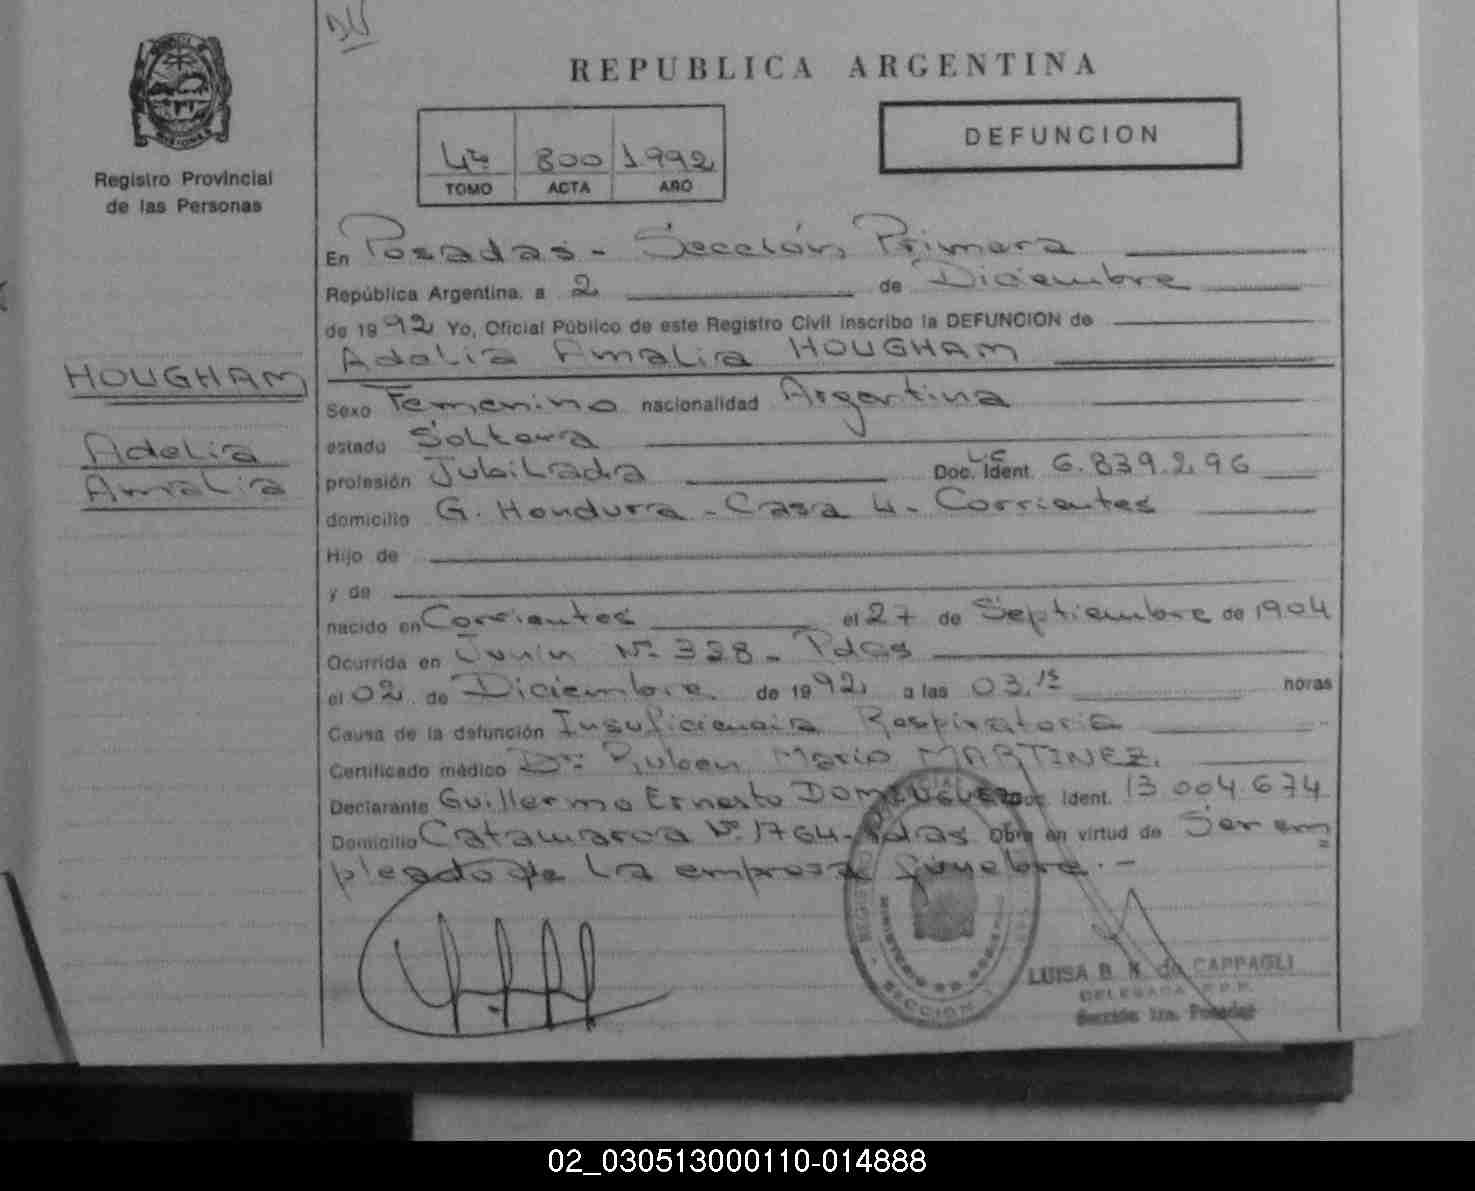 DU
REPUBLICA ARGENTINA
MISIONES
Registro Provincial
de las Personas
4º 800 1992
TOMO ACTA AÑO
DEFUNCION
En Posadas - Sección Primera
República Argentina, a 2 de Diciembre
de 1992 Yo, Oficial Público de este Registro Civil inscribo la DEFUNCION de
Adelia Amalia HOUGHAM
HOUGHAM
Adelia
Amalia
Sexo Femenino nacionalidad Argentina
estado Soltera
profesión Jubilada Doc. Ident. LC 6.839.296
domicilio G. Hondura - Casa 4 - Corrientes
Hijo de
y de
nacido en Corrientes el 27 de Septiembre de 1904
Ocurrida en Junín Nº 328 - Pdas
el 02 de Diciembre de 1992 a las 03,15 horas
Causa de la defunción Insuficiencia Respiratoria
Certificado médico Dr. Ruben Mario MARTINEZ.
Declarante Guillermo Ernesto Doc. Ident. 13.004.674
Domicilio Catamarca Nº 1764 - Pdas Obra en virtud de Ser em=
pleado de la empresa fúnebre.-
SECCION 1
LUISA B. de CAPPAGLI
DELEGADA R.P.P.
Sección 1ra. Posadas
02_030513000110-014888